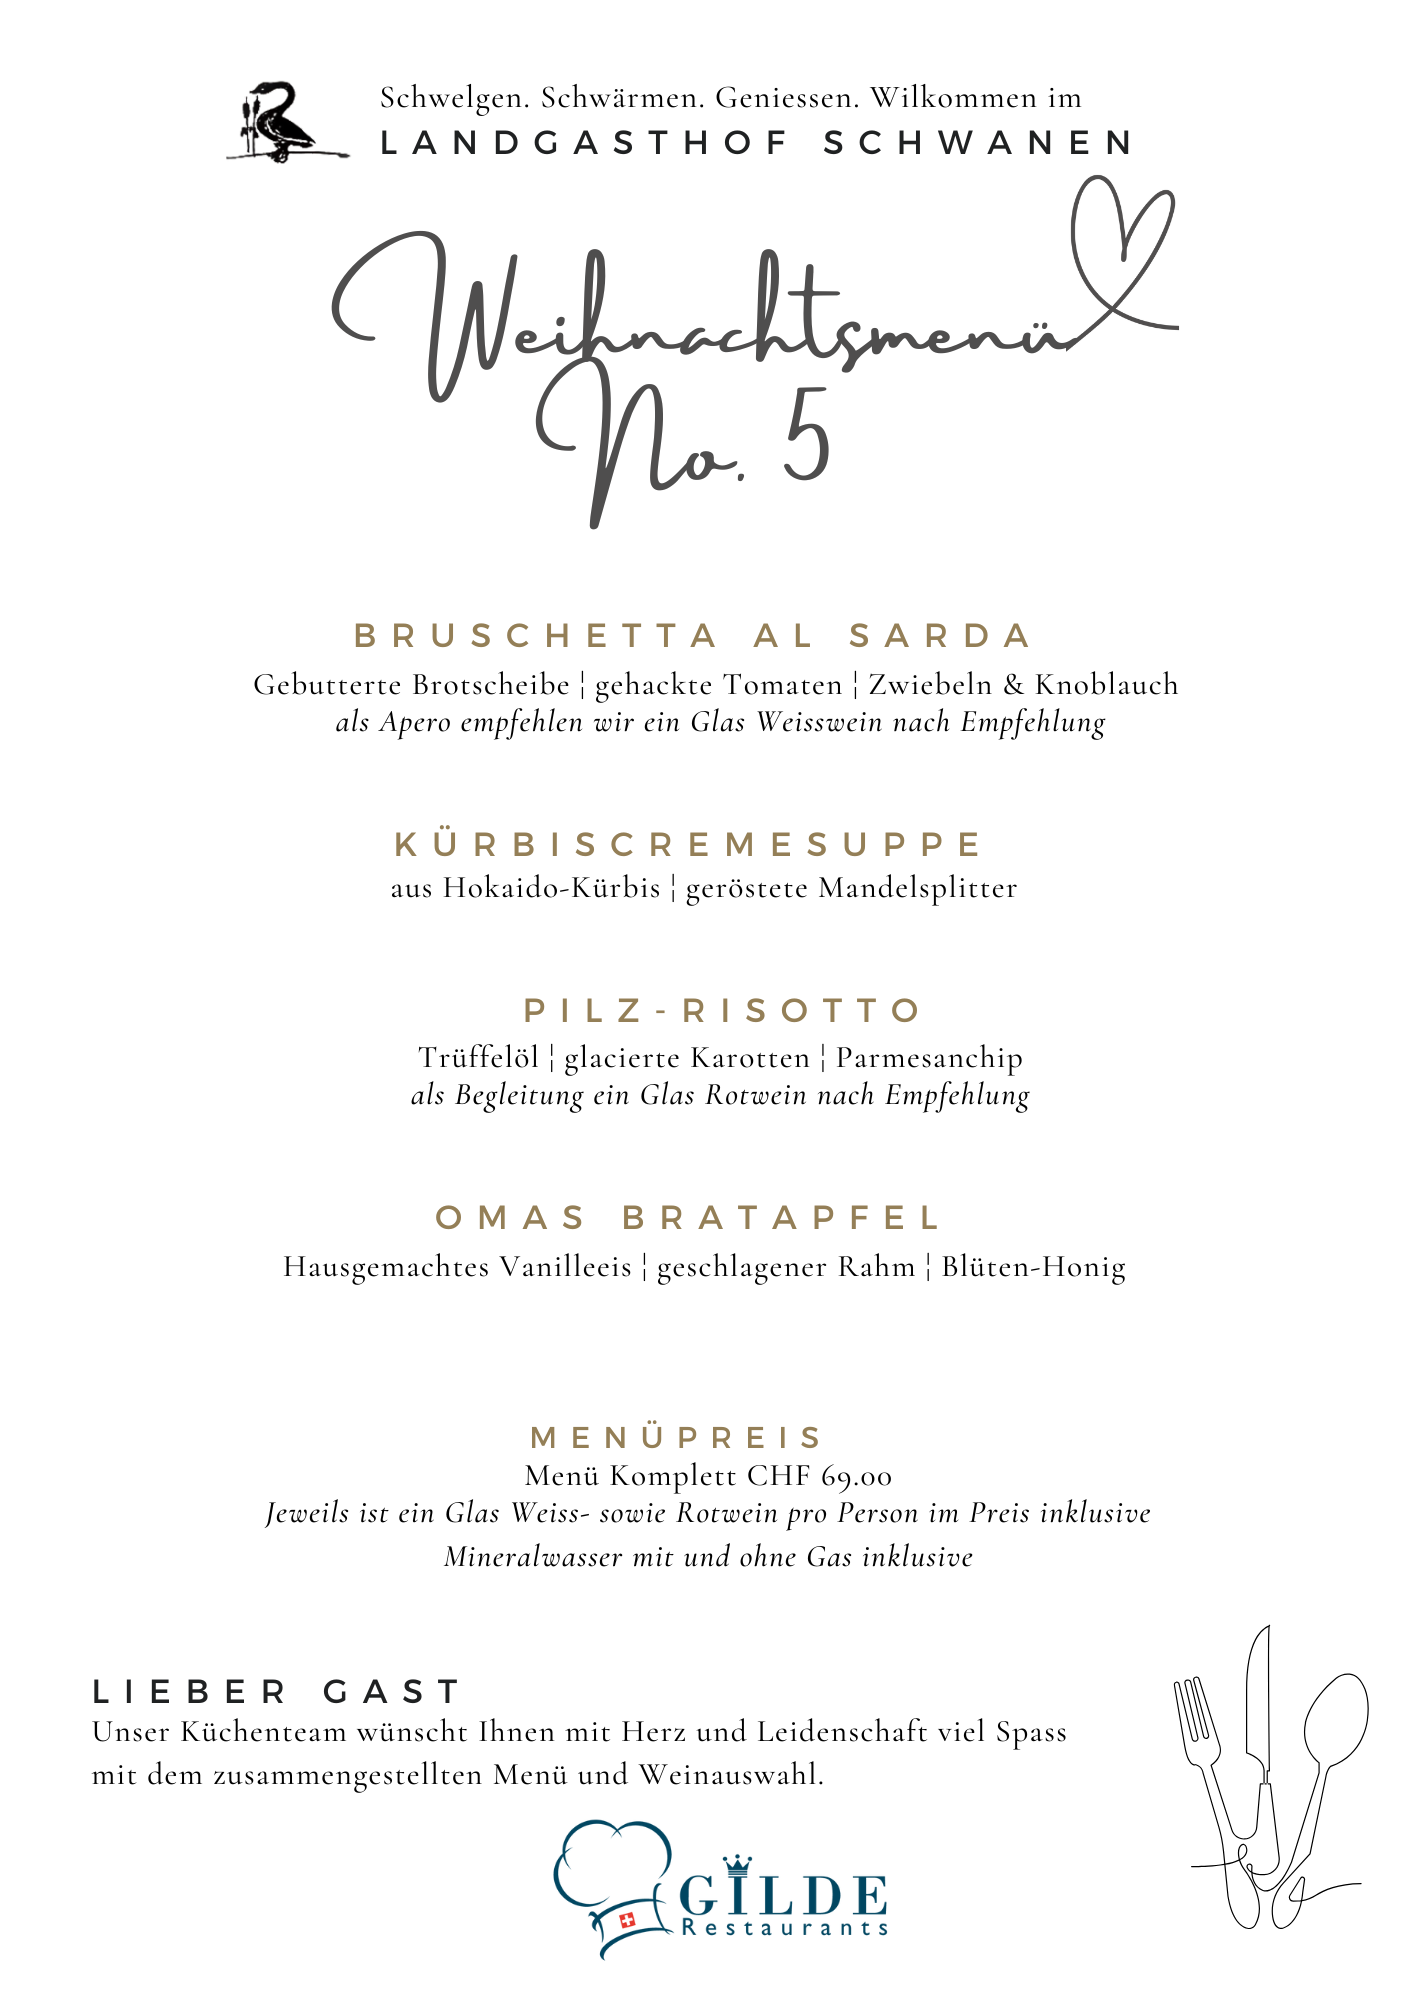 Schwelgen. Schwärmen. Geniessen. Wilkommen im
LANDGASTHOF SCHWANEN
Weihnachtsmenü
No. 5
BRUSCHETTA AL SARDA
Gebutterte Brotscheibe ¦ gehackte Tomaten ¦ Zwiebeln & Knoblauch
als Apero empfehlen wir ein Glas Weisswein nach Empfehlung
KÜRBISCREMESUPPE
aus Hokaido-Kürbis ¦ geröstete Mandelsplitter
PILZ-RISOTTO
Trüffelöl ¦ glacierte Karotten ¦ Parmesanchip
als Begleitung ein Glas Rotwein nach Empfehlung
OMAS BRATAPFEL
Hausgemachtes Vanilleeis ¦ geschlagener Rahm ¦ Blüten-Honig
MENÜPREIS
Menü Komplett CHF 69.00
Jeweils ist ein Glas Weiss- sowie Rotwein pro Person im Preis inklusive
Mineralwasser mit und ohne Gas inklusive
LIEBER GAST
Unser Küchenteam wünscht Ihnen mit Herz und Leidenschaft viel Spass
mit dem zusammengestellten Menü und Weinauswahl.
GILDE
Restaurants